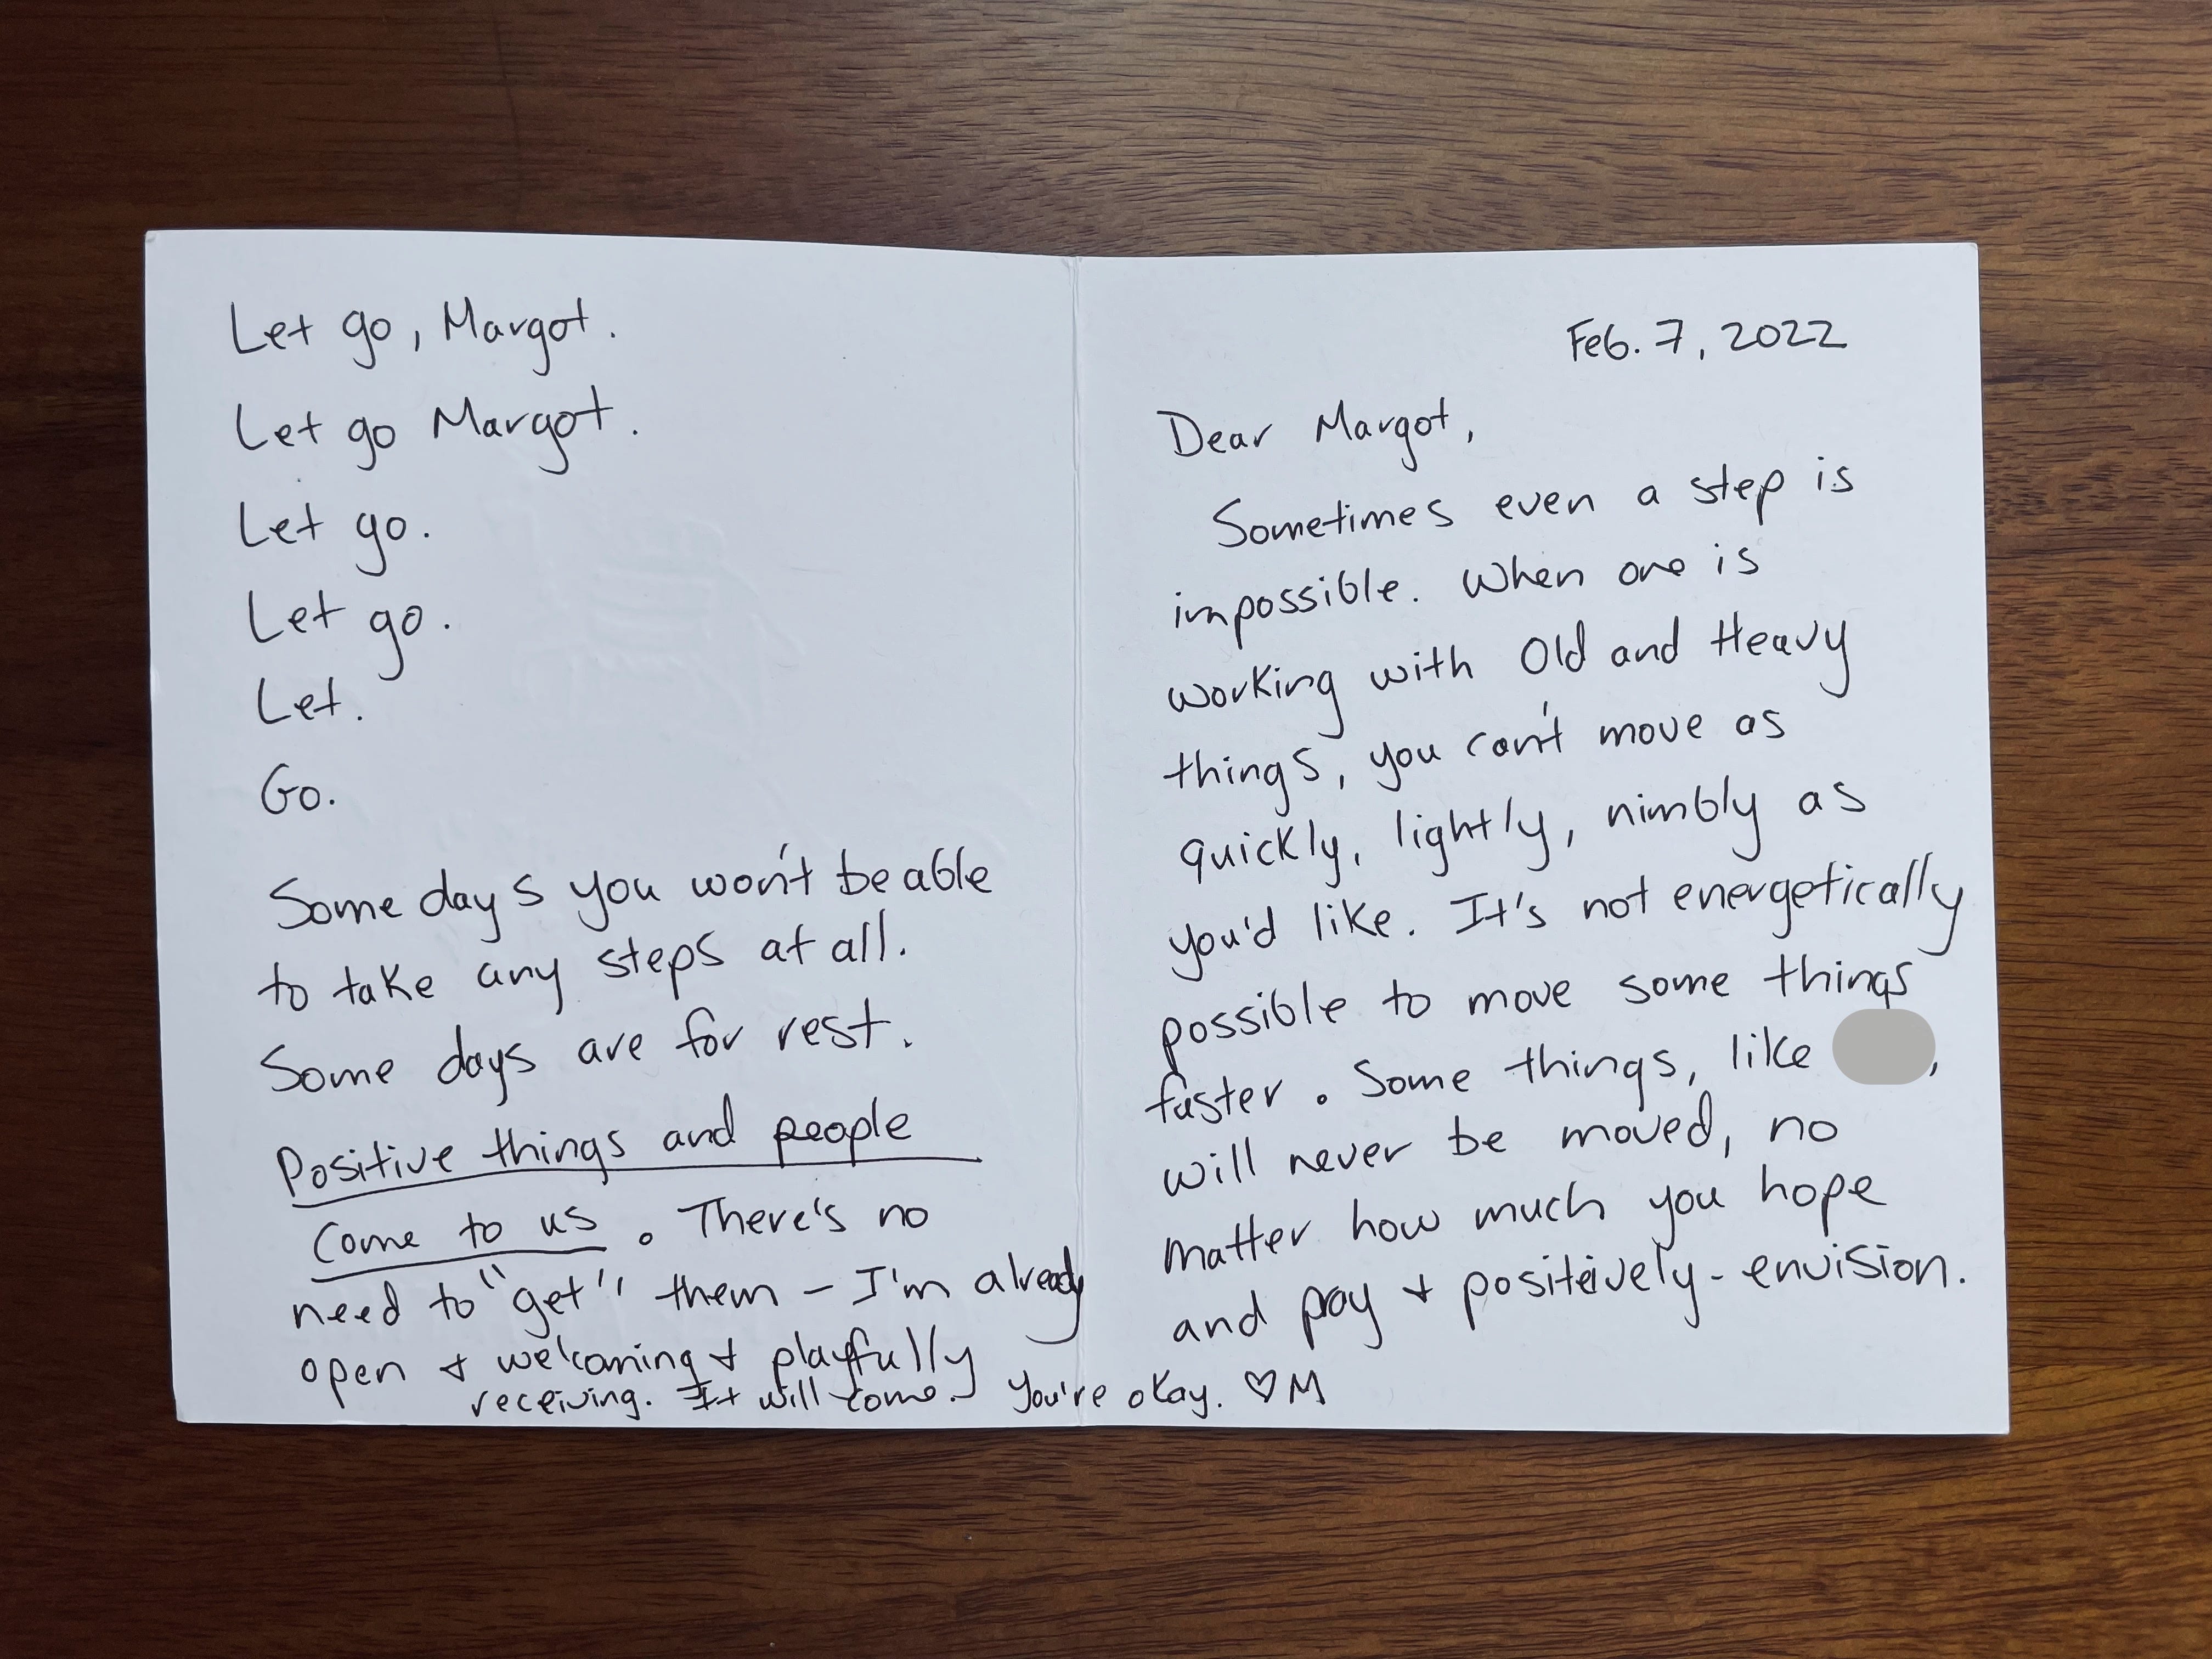 Let go, Margot.
Let go Margot.
Let go.
Let go.
Let.
Go.
Some days you won't be able
to take any steps at all.
Some days are for rest.
Positive things and people
come to us. There's no
need to "get" them – I'm already
open + welcoming + playfully
receiving. It will come. You're okay. ♡M
Feb. 7, 2022
Dear Margot,
Sometimes even a step is
impossible. When one is
working with Old and Heavy
things, you can't move as
quickly, lightly, nimbly as
you'd like. It's not energetically
possible to move some things
faster. Some things, like ,
will never be moved, no
matter how much you hope
and pray + positively-envision.